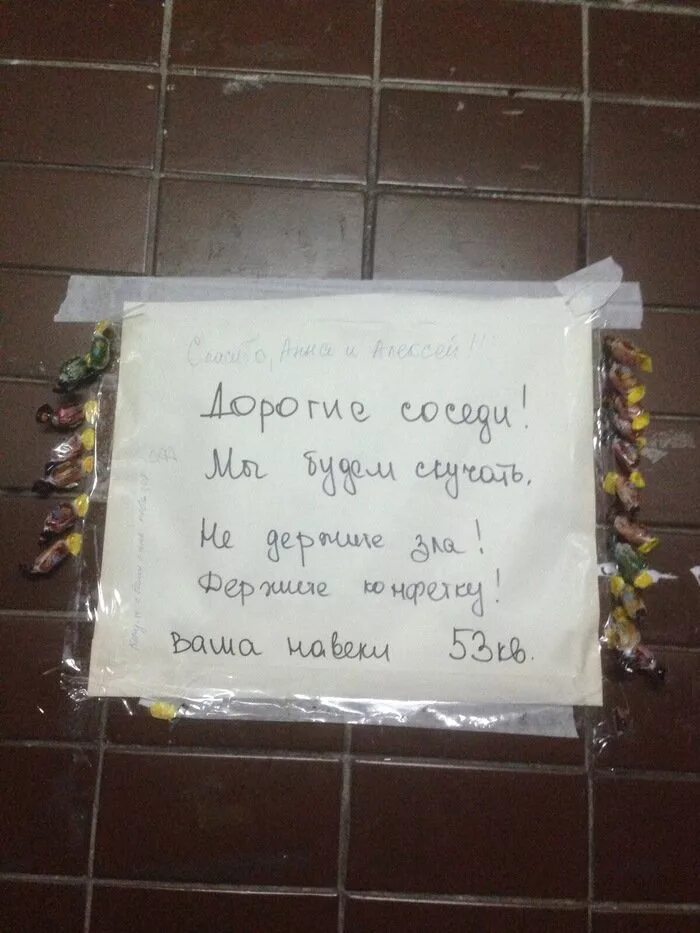 Спасибо, Анна и Алексей!!!
Дорогие соседи!
Мы будем скучать.
Не держите зла!
Держите конфетку!
ваша навеки 53 кв.